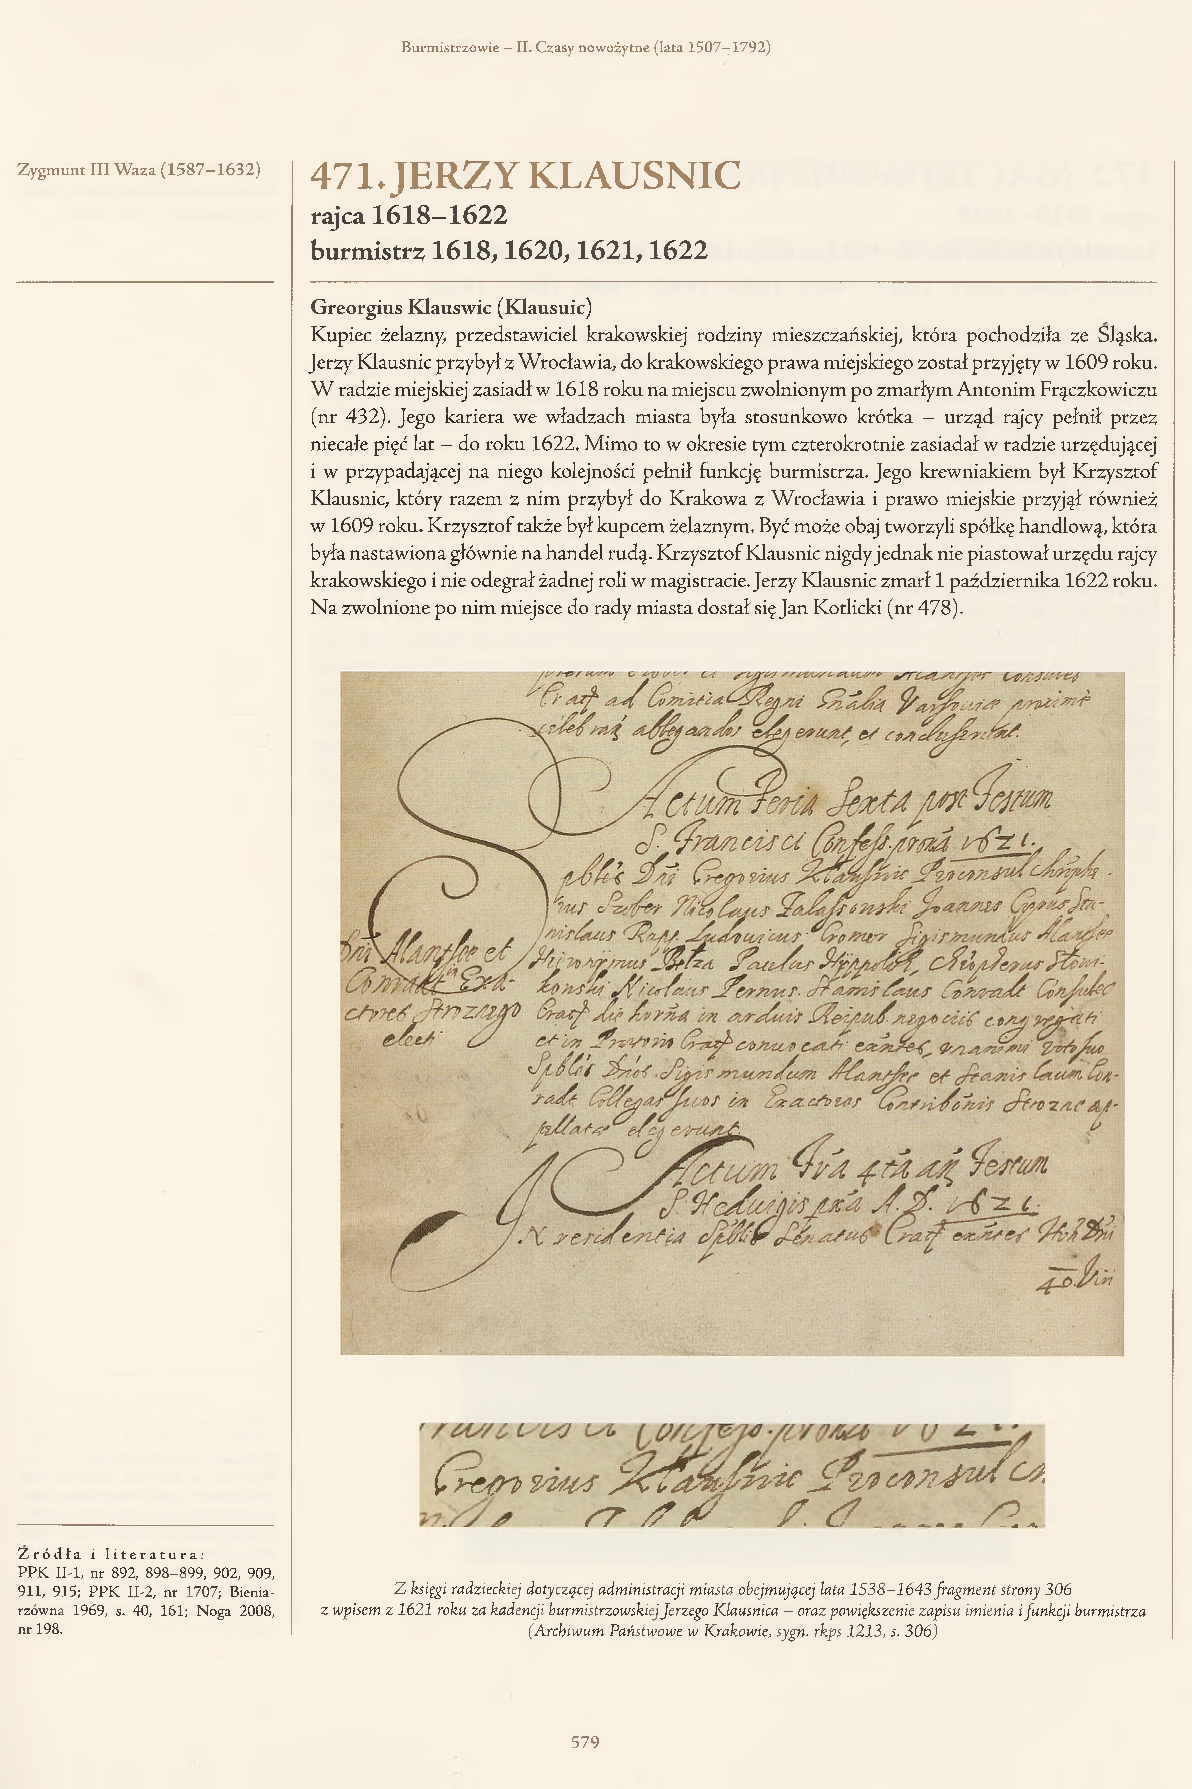 Burmistrzowie – II. Czasy nowożytne (lata 1507–1792)
Zygmunt III Waza (1587–1632)
471. JERZY KLAUSNIC
rajca 1618–1622
burmistrz 1618, 1620, 1621, 1622
Greorgius Klauswic (Klausuic)
Kupiec żelazny, przedstawiciel krakowskiej rodziny mieszczańskiej, która pochodziła ze Śląska.
Jerzy Klausnic przybył z Wrocławia, do krakowskiego prawa miejskiego został przyjęty w 1609 roku.
W radzie miejskiej zasiadł w 1618 roku na miejscu zwolnionym po zmarłym Antonim Frączkowiczu
(nr 432). Jego kariera we władzach miasta była stosunkowo krótka – urząd rajcy pełnił przez
niecałe pięć lat – do roku 1622. Mimo to w okresie tym czterokrotnie zasiadał w radzie urzędującej
i w przypadającej na niego kolejności pełnił funkcję burmistrza. Jego krewniakiem był Krzysztof
Klausnic, który razem z nim przybył do Krakowa z Wrocławia i prawo miejskie przyjął również
w 1609 roku. Krzysztof także był kupcem żelaznym. Być może obaj tworzyli spółkę handlową, która
była nastawiona głównie na handel rudą. Krzysztof Klausnic nigdy jednak nie piastował urzędu rajcy
krakowskiego i nie odegrał żadnej roli w magistracie. Jerzy Klausnic zmarł 1 października 1622 roku.
Na zwolnione po nim miejsce do rady miasta dostał się Jan Kotlicki (nr 478).
ad Comitia Regni
elegerunt, et concluserunt.
Actum Feria Sexta post Festum
S. Francisci Confess. 1621.
Gregorius Klausnic Proconsul
Nicolaus Joannes Cyprus Sta-
nislaus Rapp Ludouicus Cromer Sigismundus Alantsee
Hieronÿmus Paulus
Nicolaus Pernus. Stanislaus Conradt
in arduis Reipub. negociis congregati
et in conuocati unanimi voto suo
Sigismundum Alantsee et Stanislaum Con-
radt Collegas suos in Exactores ap-
pellatae elegerunt.
Alantsee et
Conradt in Exa-
ctores
electi
Actum 4ta Festum
S. Heduigis A. D. 1621.
Senatus
Gregorius Klausnic Proconsul
Źródła i literatura:
PPK II-1, nr 892, 898–899, 902, 909,
911, 915; PPK II-2, nr 1707; Bienia-
rzówna 1969, s. 40, 161; Noga 2008,
nr 198.
Z księgi radzieckiej dotyczącej administracji miasta obejmującej lata 1538–1643 fragment strony 306
z wpisem z 1621 roku za kadencji burmistrzowskiej Jerzego Klausnica – oraz powiększenie zapisu imienia i funkcji burmistrza
(Archiwum Państwowe w Krakowie, sygn. rkps 1213, s. 306)
579